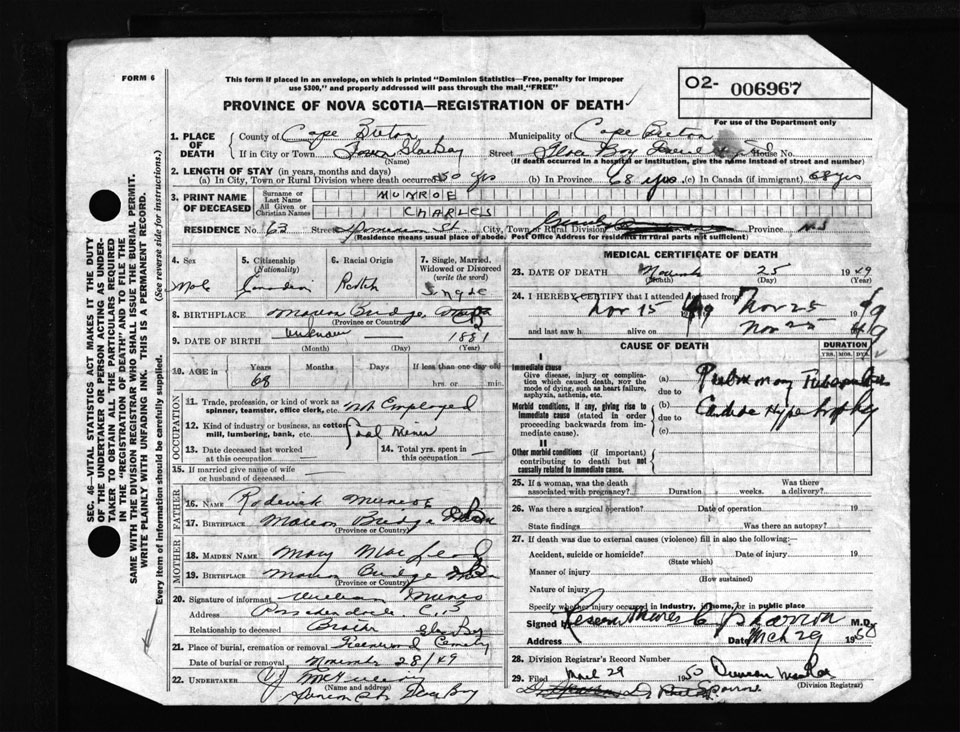 FORM 6
This form if placed in an envelope, on which is printed "Dominion Statistics—Free, penalty for improper
use $300," and properly addressed will pass through the mail "FREE"
O2- 006967
PROVINCE OF NOVA SCOTIA—REGISTRATION OF DEATH
For use of the Department only
1. PLACE OF DEATH
County of Cape Breton Municipality of Cape Breton
If in City or Town Town Glace Bay Street Glace Bay House No.
(Name) (If death occurred in a hospital or Institution, give the name instead of street and number)
2. LENGTH OF STAY (in years, months and days)
(a) In City, Town or Rural Division where death occurred 50 yrs (b) In Province 68 yrs (c) In Canada (if immigrant) 68 yrs
3. PRINT NAME OF DECEASED
Surname or Last Name MUNROE
All Given or Christian Names CHARLES
RESIDENCE No. 63 Street Dominion St. City, Town or Rural Division Province N.S
(Residence means usual place of abode. Post Office Address for residents in rural parts not sufficient)
4. Sex
Male
5. Citizenship
(Nationality)
Canadian
6. Racial Origin
7. Single, Married, Widowed or Divorced
(write the word)
Single
8. BIRTHPLACE Marion Bridge, CB
(Province or Country)
9. DATE OF BIRTH Unknown — 1881
(Month) (Day) (Year)
10. AGE in Years Months Days If less than one day old
68 hrs. or min.
OCCUPATION
11. Trade, profession, or kind of work as
spinner, teamster, office clerk, etc. Not Employed
12. Kind of industry or business, as cotton
mill, lumbering, bank, etc. Coal Miner
13. Date deceased last worked
at this occupation —
14. Total yrs. spent in
this occupation —
15. If married give name of wife
or husband of deceased
FATHER
16. NAME Roderick Munroe
17. BIRTHPLACE Marion Bridge CB
(Province or Country)
MOTHER
18. MAIDEN NAME Mary MacLeod
19. BIRTHPLACE Marion Bridge CB
(Province or Country)
20. Signature of informant William Munro
Address Passchendale C.B
Relationship to deceased Brother Glace Bay
21. Place of burial, cremation or removal Greenwood Cemetery
Date of burial or removal November 28/49
22. UNDERTAKER
(Name and address)
Glace Bay
MEDICAL CERTIFICATE OF DEATH
23. DATE OF DEATH November 25 1949
(Month) (Day) (Year)
24. I HEREBY CERTIFY that I attended deceased from
Nov 15 1949 Nov 25 49
and last saw h alive on Nov 25 49
CAUSE OF DEATH DURATION
YRS. MOS. DYS.
I
Immediate cause
Give disease, injury or complication which caused death, not the mode of dying, such as heart failure, asphyxia, asthenia, etc.
(a) Pulmonary Tuberculosis
due to
Morbid conditions, if any, giving rise to immediate cause (stated in order proceeding backwards from immediate cause).
(b) Cardiac Hypertrophy
due to
(c)
II
Other morbid conditions (if important) contributing to death but not causally related to immediate cause.
25. If a woman, was the death
associated with pregnancy? Duration weeks. Was there a delivery?
26. Was there a surgical operation? Date of operation 19
State findings Was there an autopsy?
27. If death was due to external causes (violence) fill in also the following:—
Accident, suicide or homicide? Date of injury 19
(State which)
Manner of injury
(How sustained)
Nature of injury
Specify whether injury occurred in industry, in home, or in public place
Signed by M.D.
Address Reserve Mines Date Mch 29 1950
28. Division Registrar's Record Number
29. Filed March 29 1950
(Division Registrar)
SEC. 46—VITAL STATISTICS ACT MAKES IT THE DUTY
OF THE UNDERTAKER OR PERSON ACTING AS UNDERTAKER TO OBTAIN ALL THE PARTICULARS REQUIRED
IN THE "REGISTRATION OF DEATH" AND TO FILE THE
SAME WITH THE DIVISION REGISTRAR WHO SHALL ISSUE THE BURIAL PERMIT.
WRITE PLAINLY WITH UNFADING INK. THIS IS A PERMANENT RECORD.
Every item of Information should be carefully supplied. (See reverse side for instructions.)